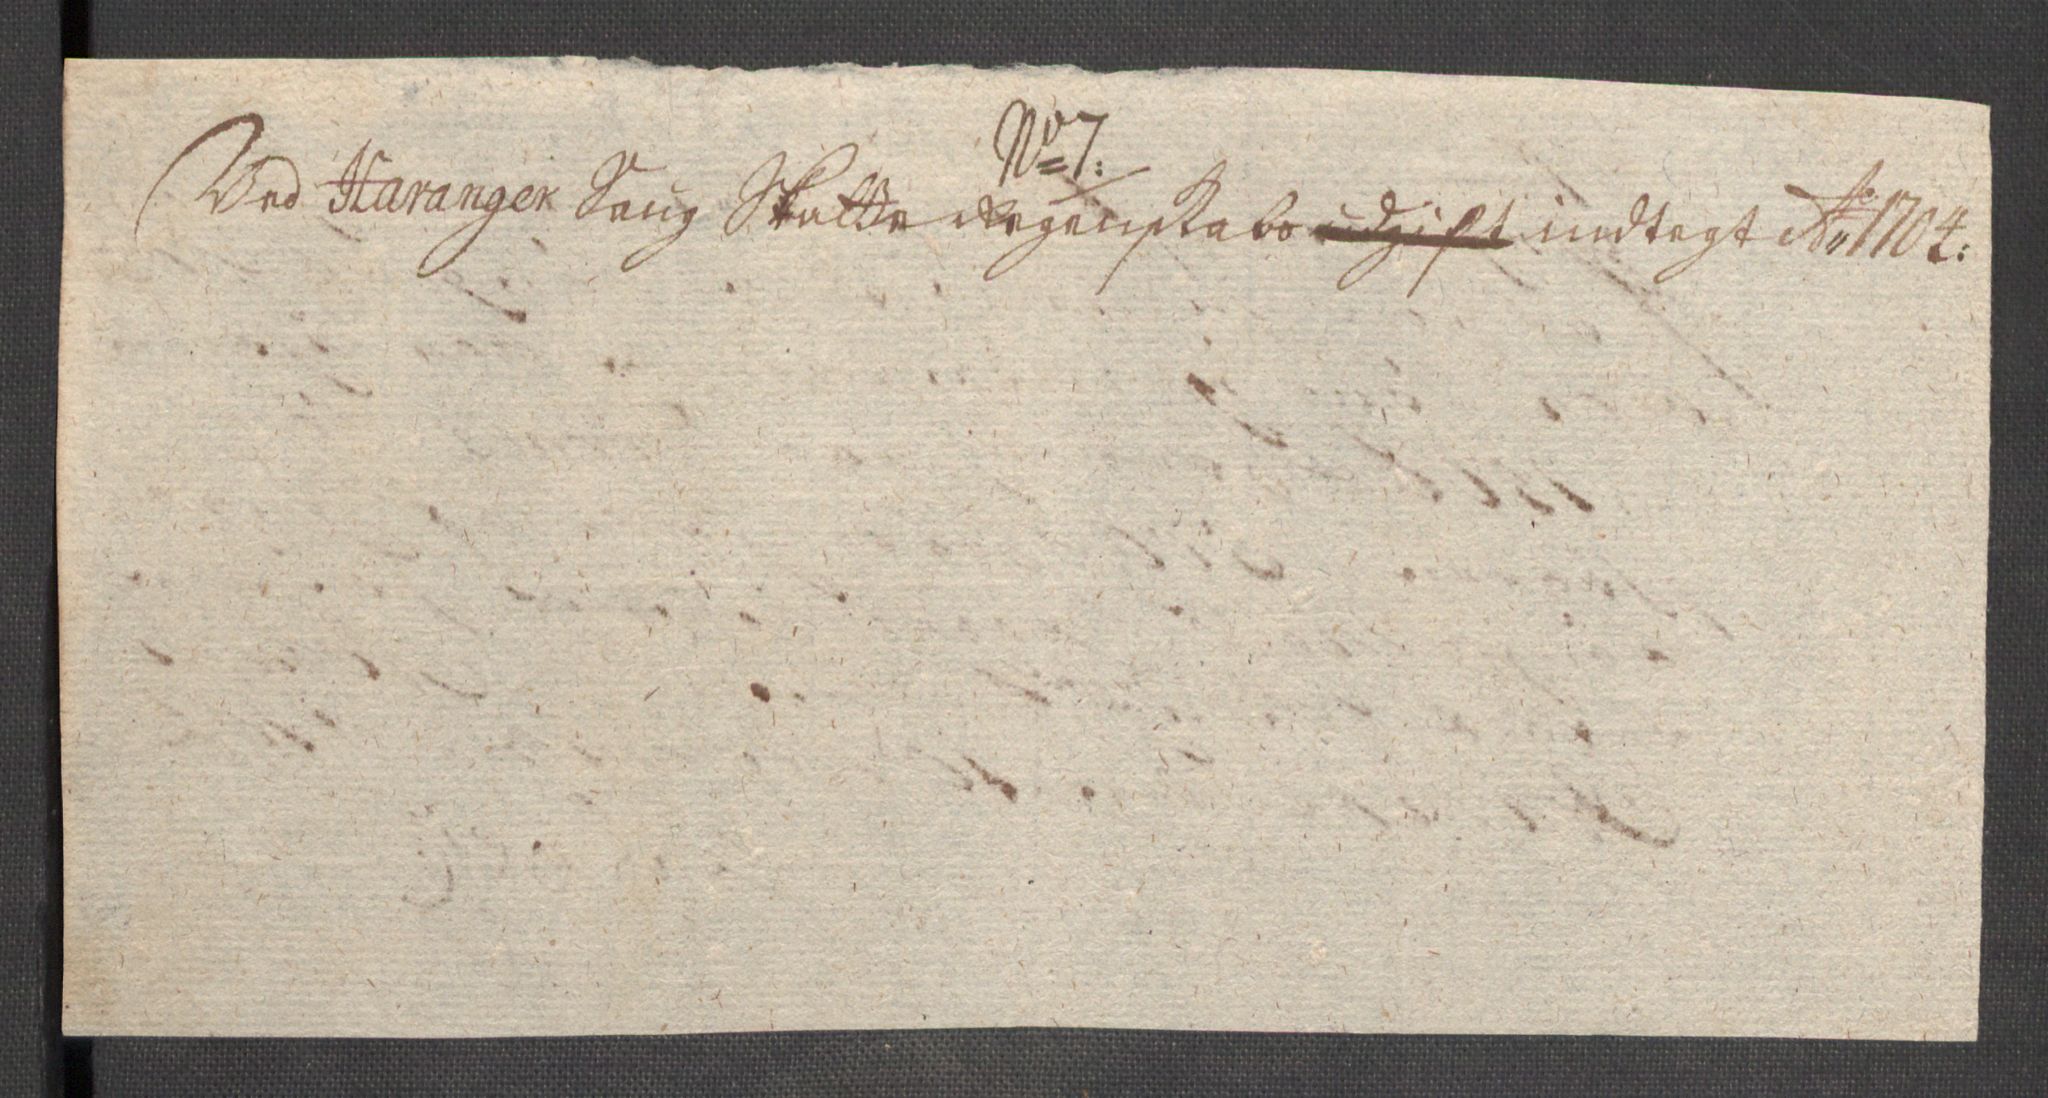 No 7:
Ved Haranger Saug Skatte Regenskabs udgift indtegt Ao 1704: